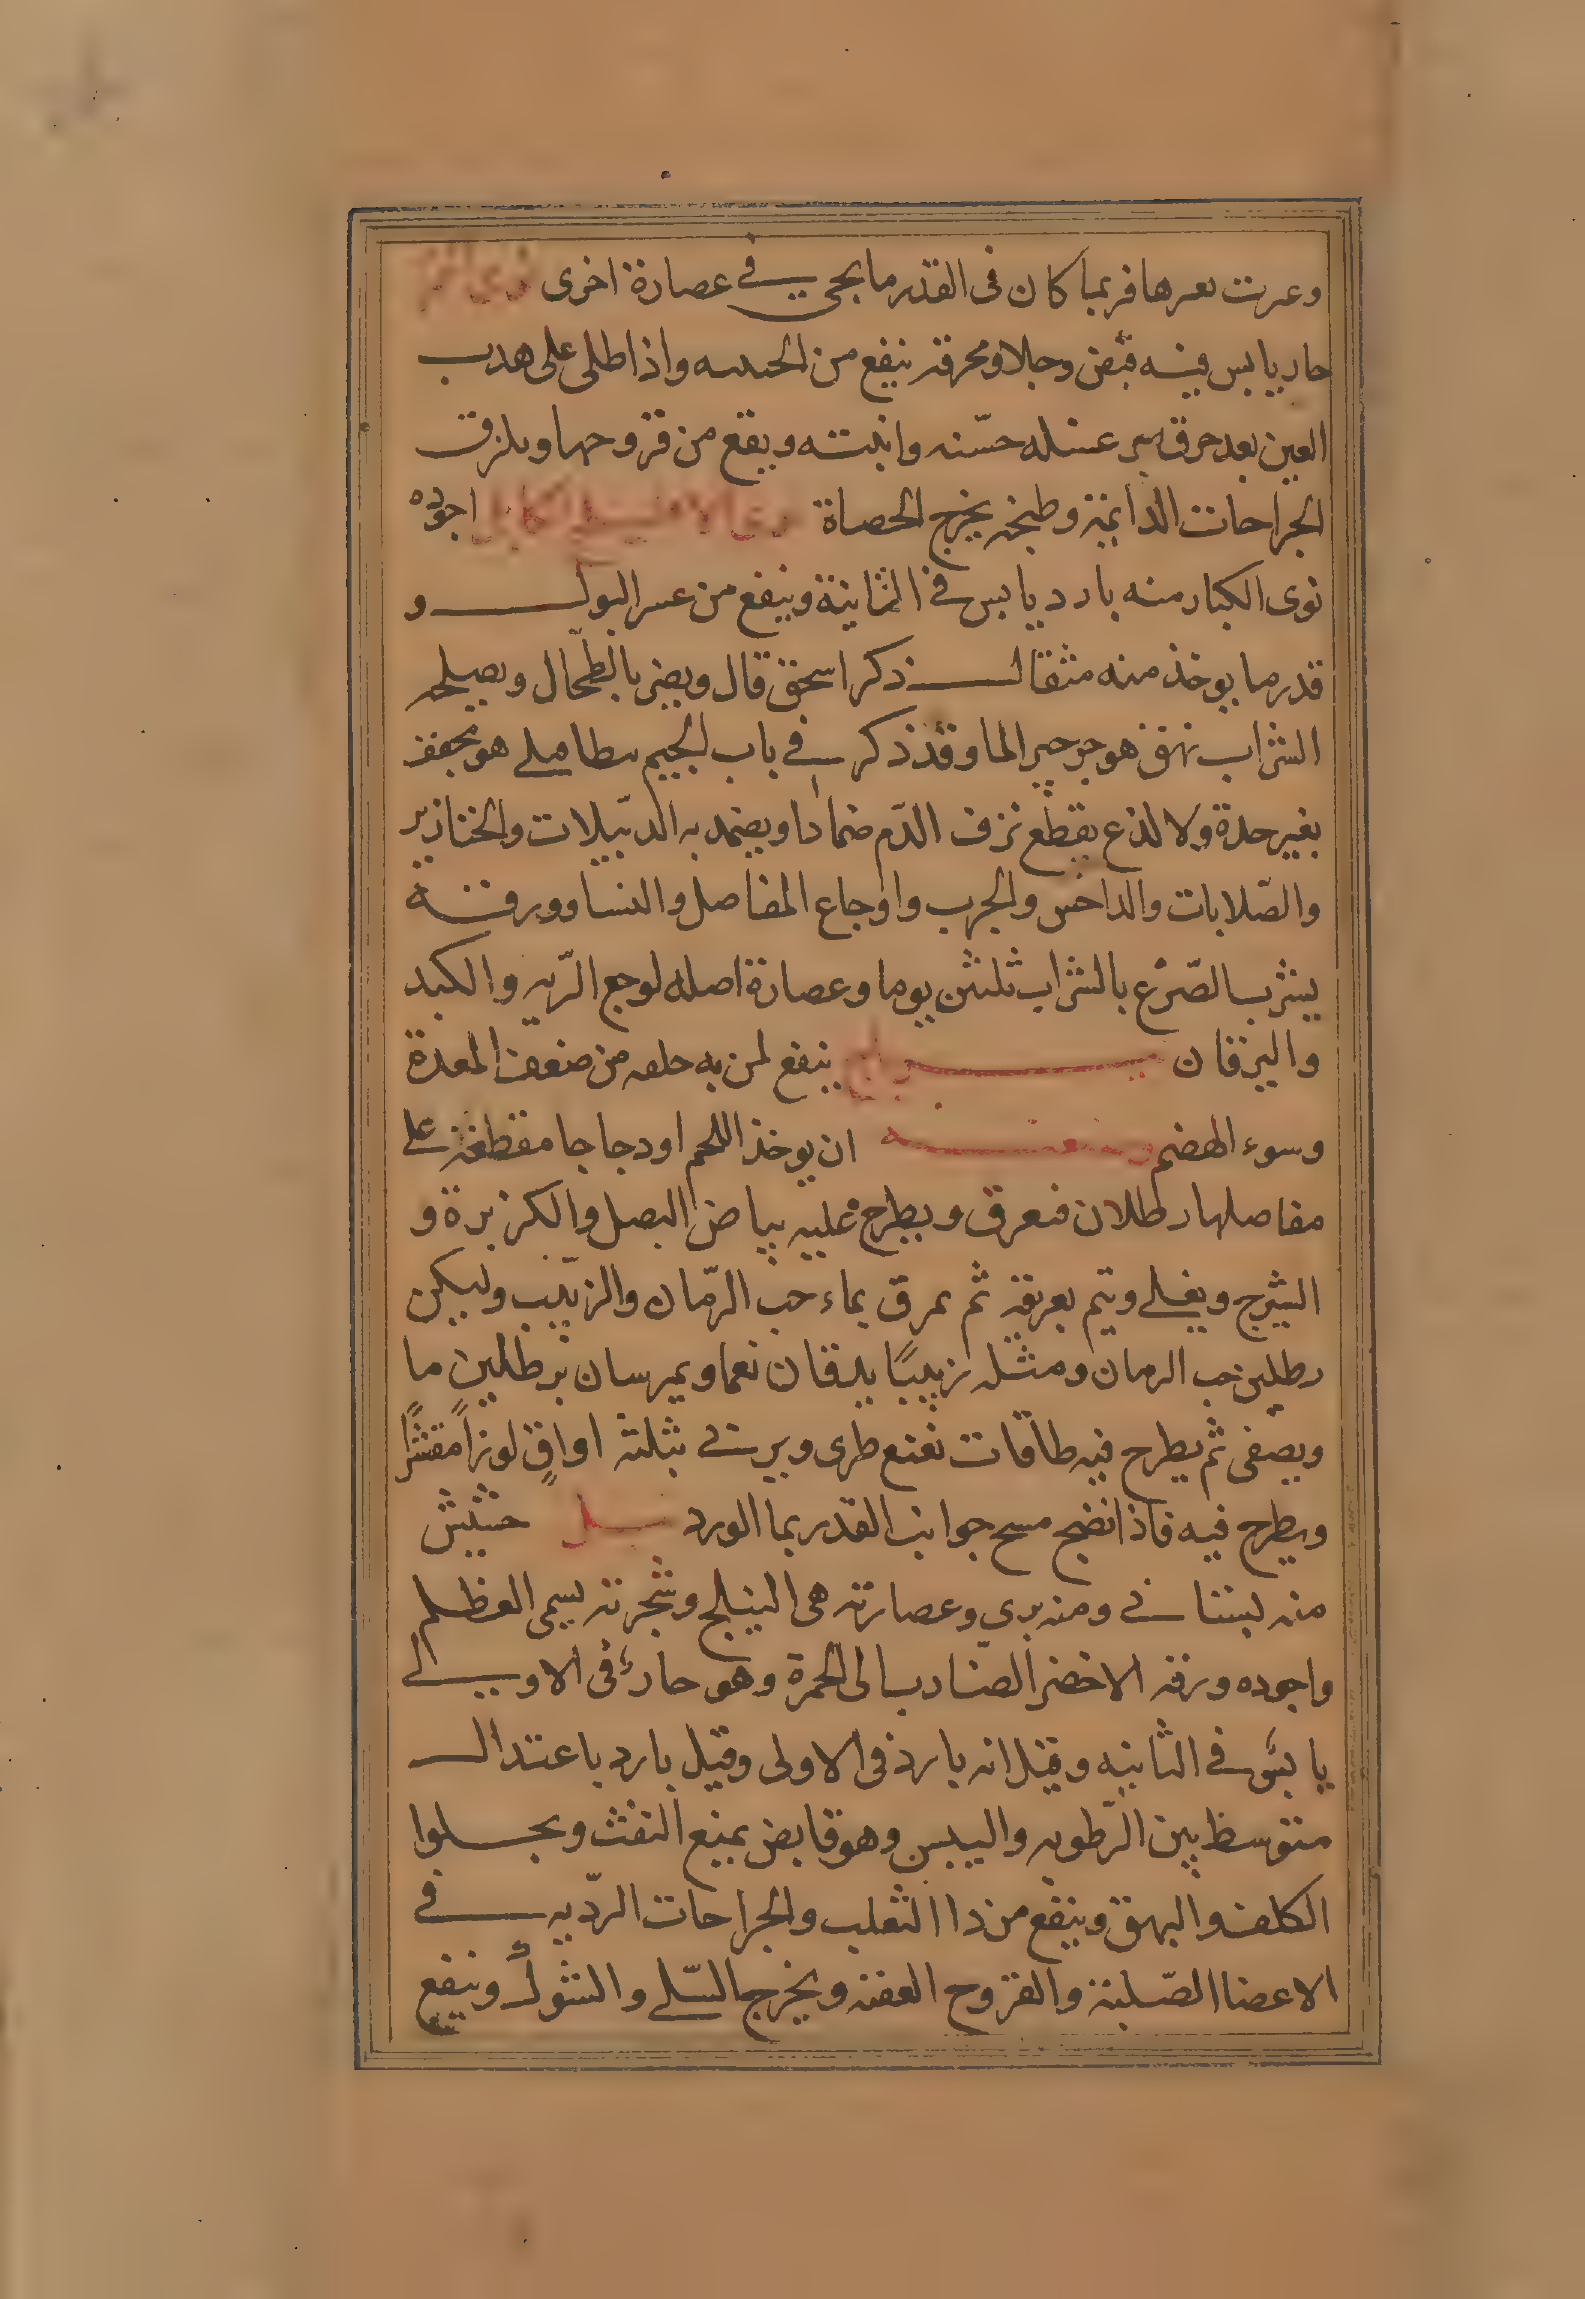 وعرت بعرها فربما كان فى القدر ما يجى في عصارة اخرى نوى التمر
حار يابس فيه قبض وجلا ومحرقه ينفع من الخبيثه واذا طلى على هدب
العين بعد حرقه ثم غسله حسّنه وانبته وينفع من قروحها ويلزق
الجراحات الدائمة وطبيخه يخرج الحصاة نوى الاهليلج الكابلى اجوده
نوى الكبار منه بارد يابس في الثانية وينفع من عسر البول و
قدر ما يوخذ منه مثقال ذكر اسحق قال ويضر بالطّحال ويصلحه
الشراب نهق هو جرجير الما وقد ذكر في باب الجيم هو مجفف
بغير حدة ولا لذع يقطع نزف الدّم ضمادا ويضمد به الدبيلات والخنازير
والصّلابات والداخس والجرب واوجاع المفاصل والنسا وورقه
يشرب للصّرع بالشراب ثلثين يوما وعصارة اصله لوجع الرّيه والكبد
واليرقان ينفع لمن به خلفه من ضعف المعدة
وسوء الهضم وصنعته ان يوخذ اللحم او دجاجا مقطعة على
مفاصلها رطلان فيعرق ويطرح عليه بياض البصل والكزبرة و
الشيرج ويغلي ويتم بعريقه ثم يمرق بماء حب الرّمان والزبيب وليكن
رطلين حب الرمان ومثله زبيبًا يدقان نعما ويمرسان برطلين ما
ويصفى ثم يطرح فيه طاقات نعنع طرى ويربي بثلثة اواقٍ لوزاً مقشراً
ويطرح فيه فاذا نضج مسح جوانب القدر بما الورد نيل حشيش
منه بستاني ومنه بري وعصارته هى النيلج وشجرته يسمى العظلم
واجوده ورقه الاخضر الضارب الى الحمرة وهو حار فى الاولي
يابس في الثانيه وقيل انه بارد فى الاولى وقيل بارد باعتدال
متوسط بين الرّطوبه واليبس وهو قابض يمنع النفث ويجلوا
الكلف والبهق وينفع من دا الثعلب والجراحات الردّيه في
الاعضا الصّلبة والقروح العفنه ويخرج السّلي والشوك وينفع